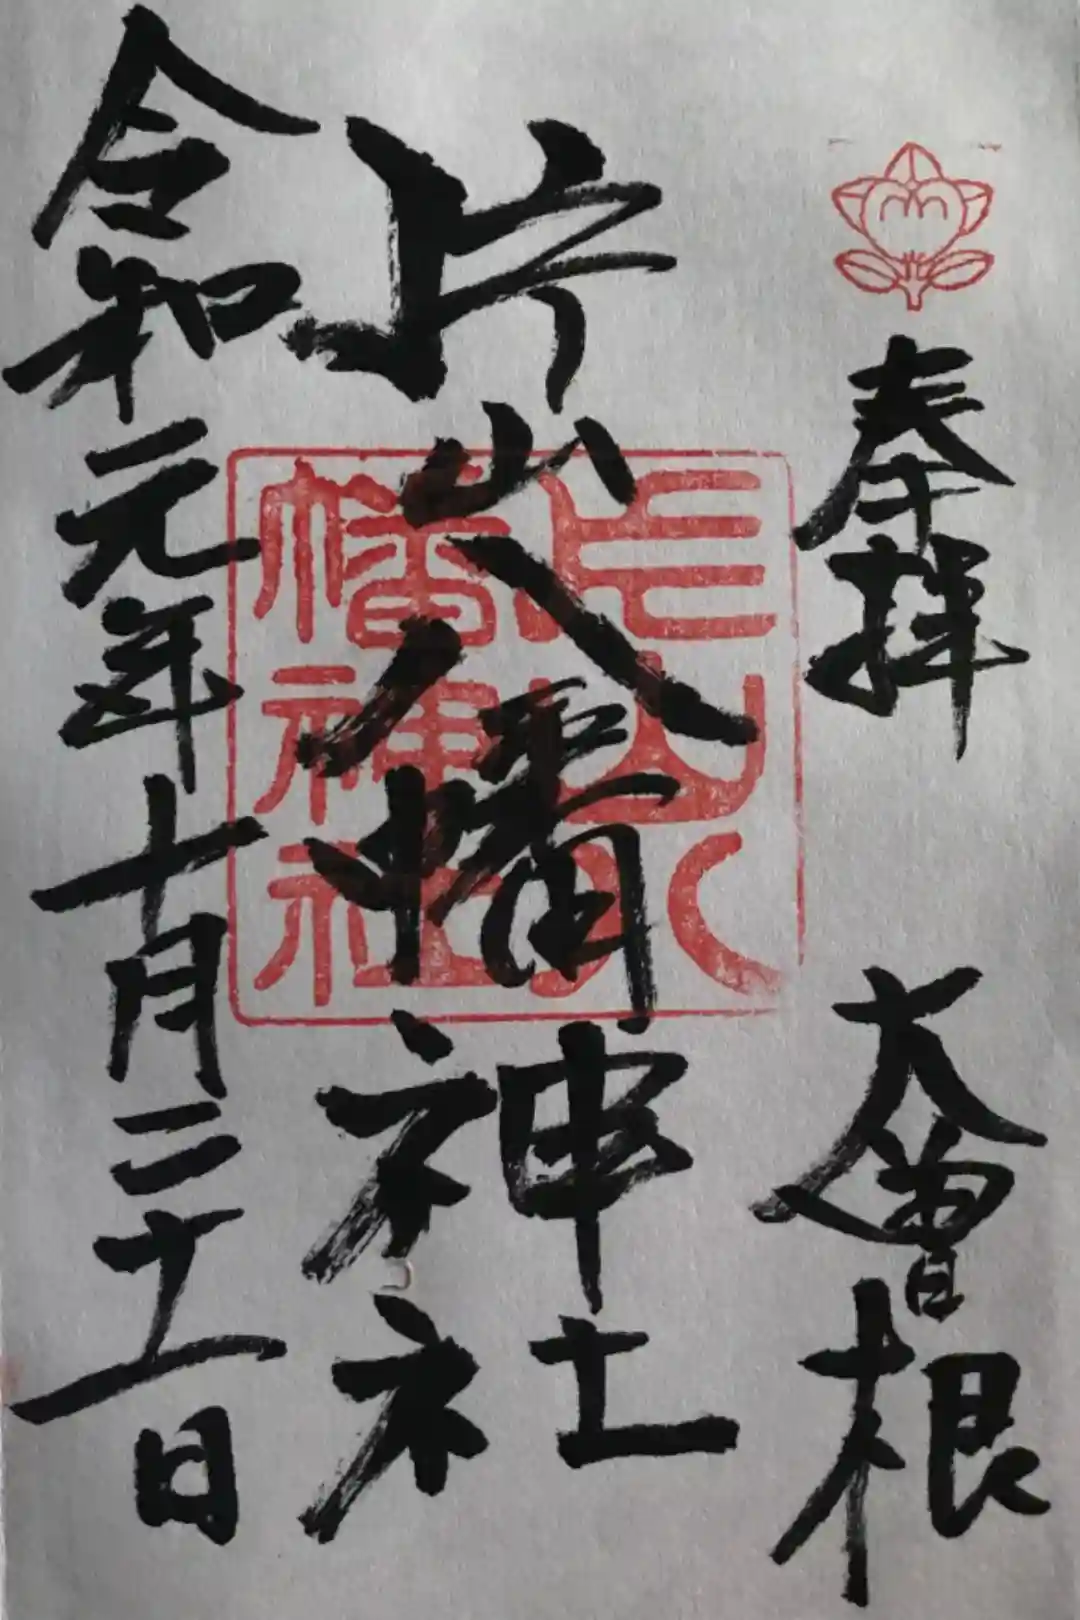 奉拝 大曽根
片山八幡神社
片山八
幡神社
令和元年十月二十一日